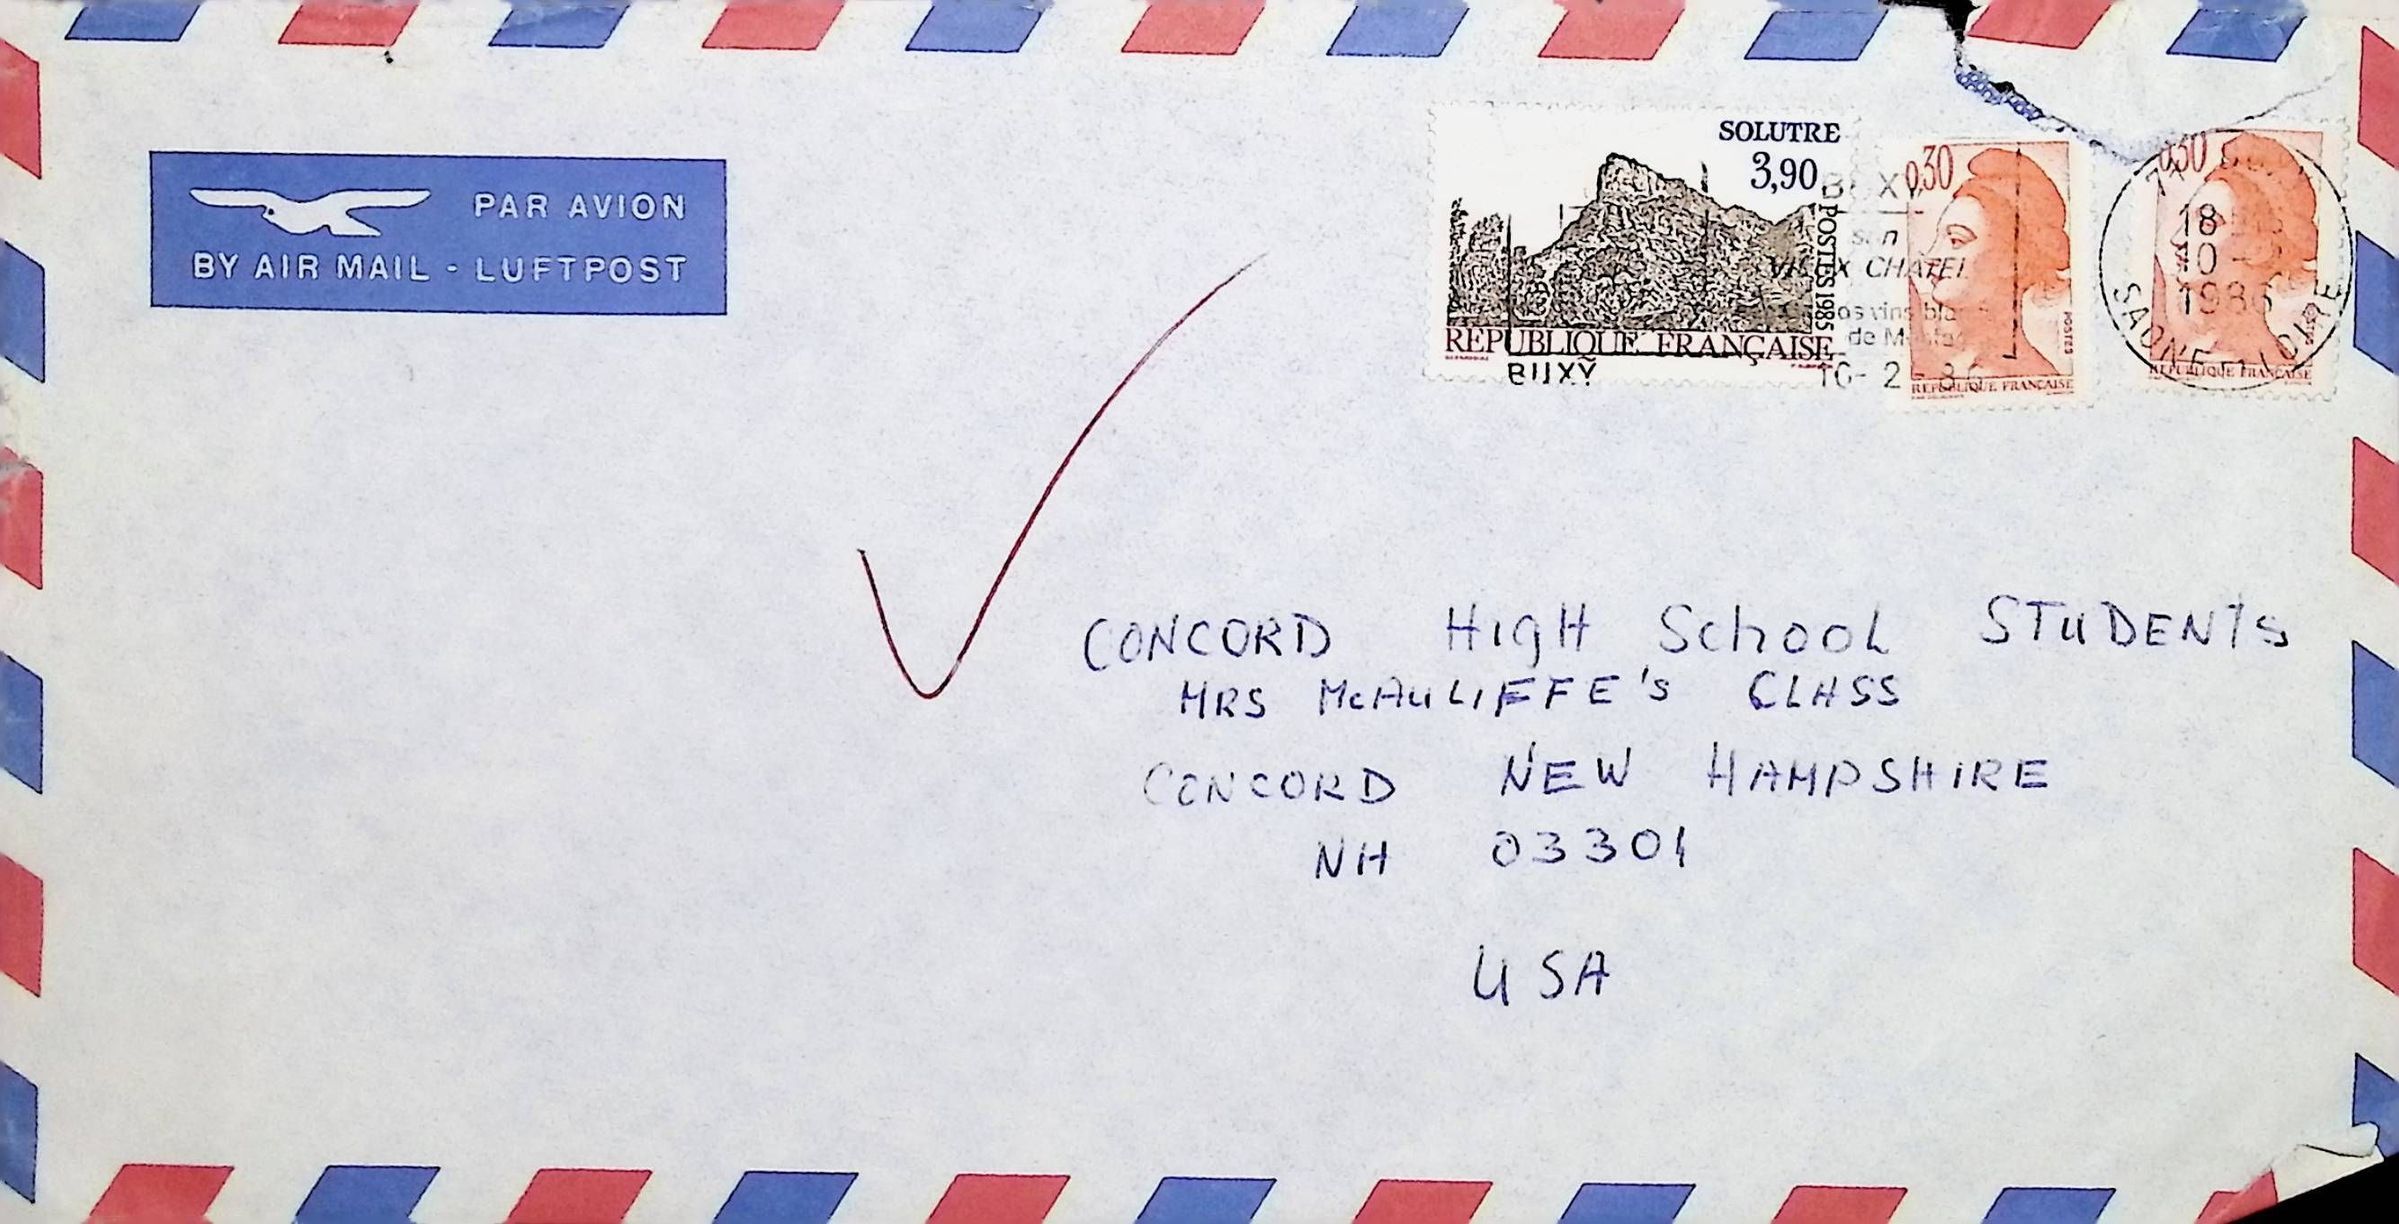 PAR AVION
BY AIR MAIL - LUFTPOST
SOLUTRE
3,90
POSTES 1985
REPUBLIQUE FRANÇAISE
BUXY
CHATEL
de
10-2-86
0,30
POSTES
REPUBLIQUE FRANÇAISE
0,30
REPUBLIQUE FRANÇAISE
71
18
10
1986
SAONE-ET-LOIRE
CONCORD HIgH School STUDENTS
MRS McAULIFFE's CLASS
CONCORD NEW HAMPSHIRE
NH 03301
USA